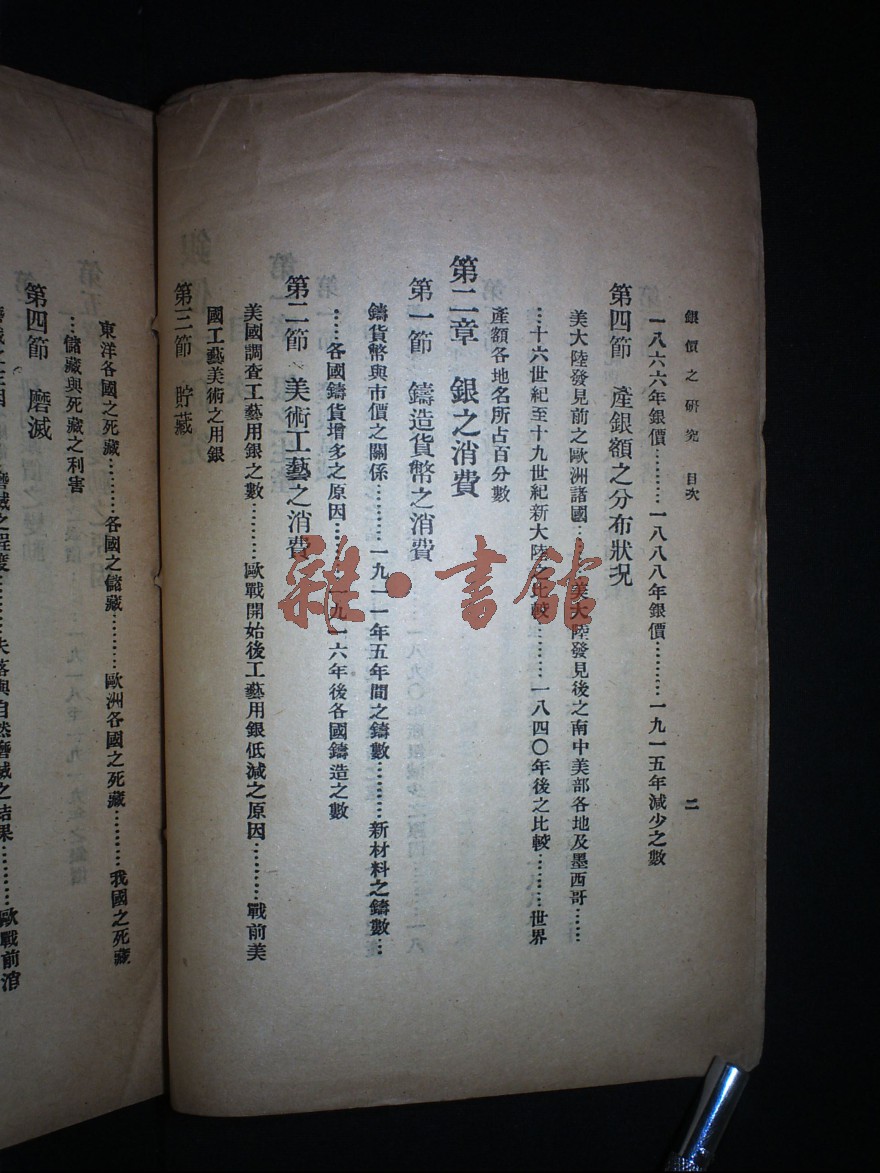 銀價之研究 目次 二
一八六六年銀價………一八八八年銀價………一九一五年減少之數
第四節 產銀額之分布狀况
美大陸發見前之歐洲諸國………美大陸發見後之南中美部各地及墨西哥……
…十六世紀至十九世紀新大陸之比較………一八四〇年後之比較………世界
產額各地名所占百分數
第二章 銀之消費
第一節 鑄造貨幣之消費
鑄貨幣與市價之關係………一九一一年五年間之鑄數………新材料之鑄數…
……各國鑄貨增多之原因………一九一六年後各國鑄造之數
第二節 美術工藝之消費
美國調查工藝用銀之數………歐戰開始後工藝用銀低減之原因………戰前美
國工藝美術之用銀
第三節 貯藏
東洋各國之死藏………各國之儲藏………歐洲各國之死藏………我國之死藏
…儲藏與死藏之利害
第四節 磨滅
磨滅之主因………磨滅之程度………失落與自然磨滅之結果………歐戰前消
雜·書館